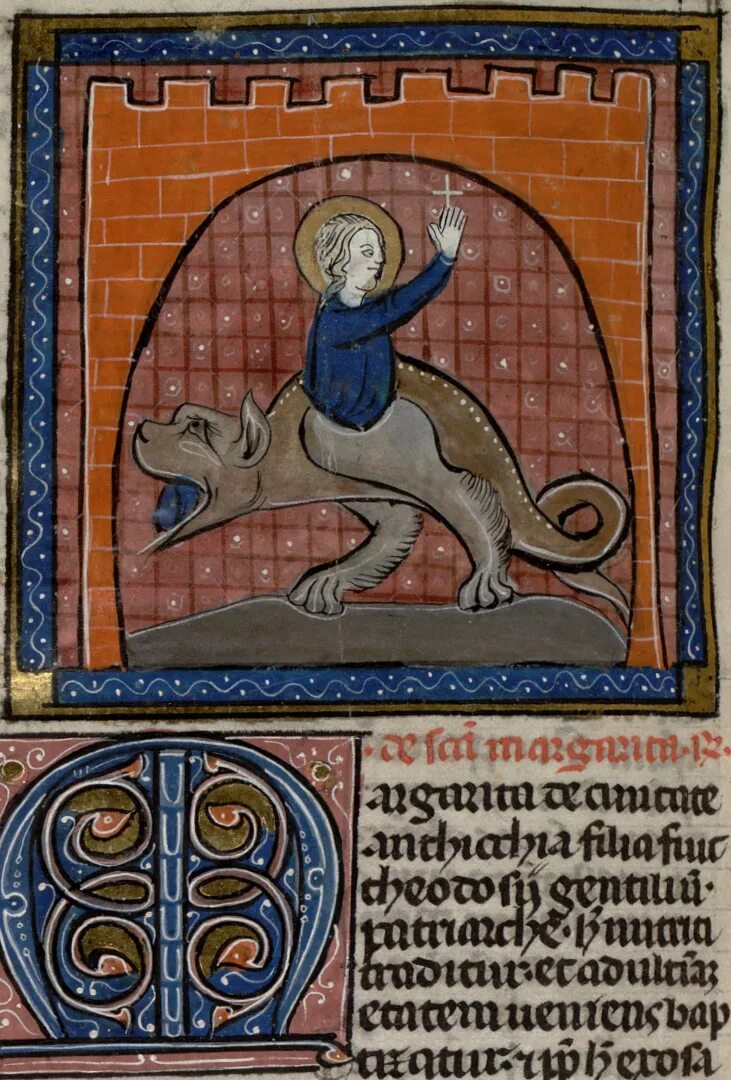 de scā margarita. lx.
Margarita de ciuitate
anthiochia filia fuit
theodosij gentiliū
patriarche. h̄ nutrici
traditur. et ad ultām
etatem ueniens bap
tizatur. ⁊ ip̄o h̄ exosa